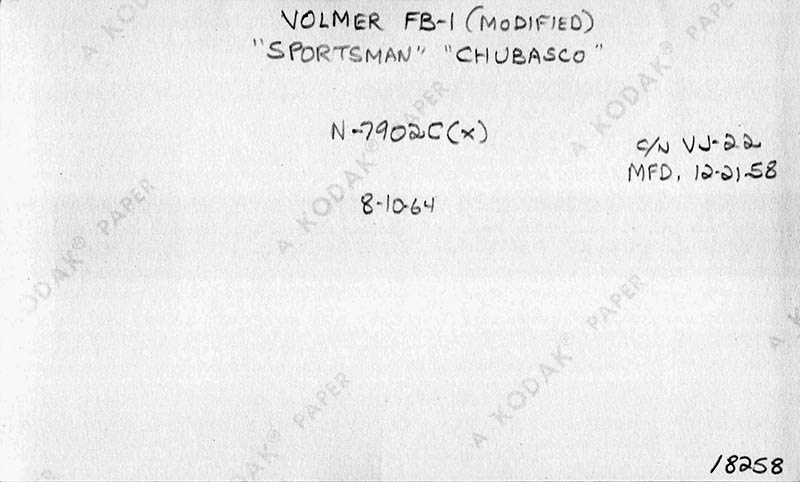 VOLMER FB-1 (MODIFIED)
"SPORTSMAN" "CHUBASCO"
N-7902C(X)
C/N VJ-22
MFD, 12-21-58
8-10-64
18258
A KODAK® PAPER
A KODAK® PAPER
A KODAK® PAPER
KODAK® PAPER
A KODAK® PAPER
DAK® PAPER
A K